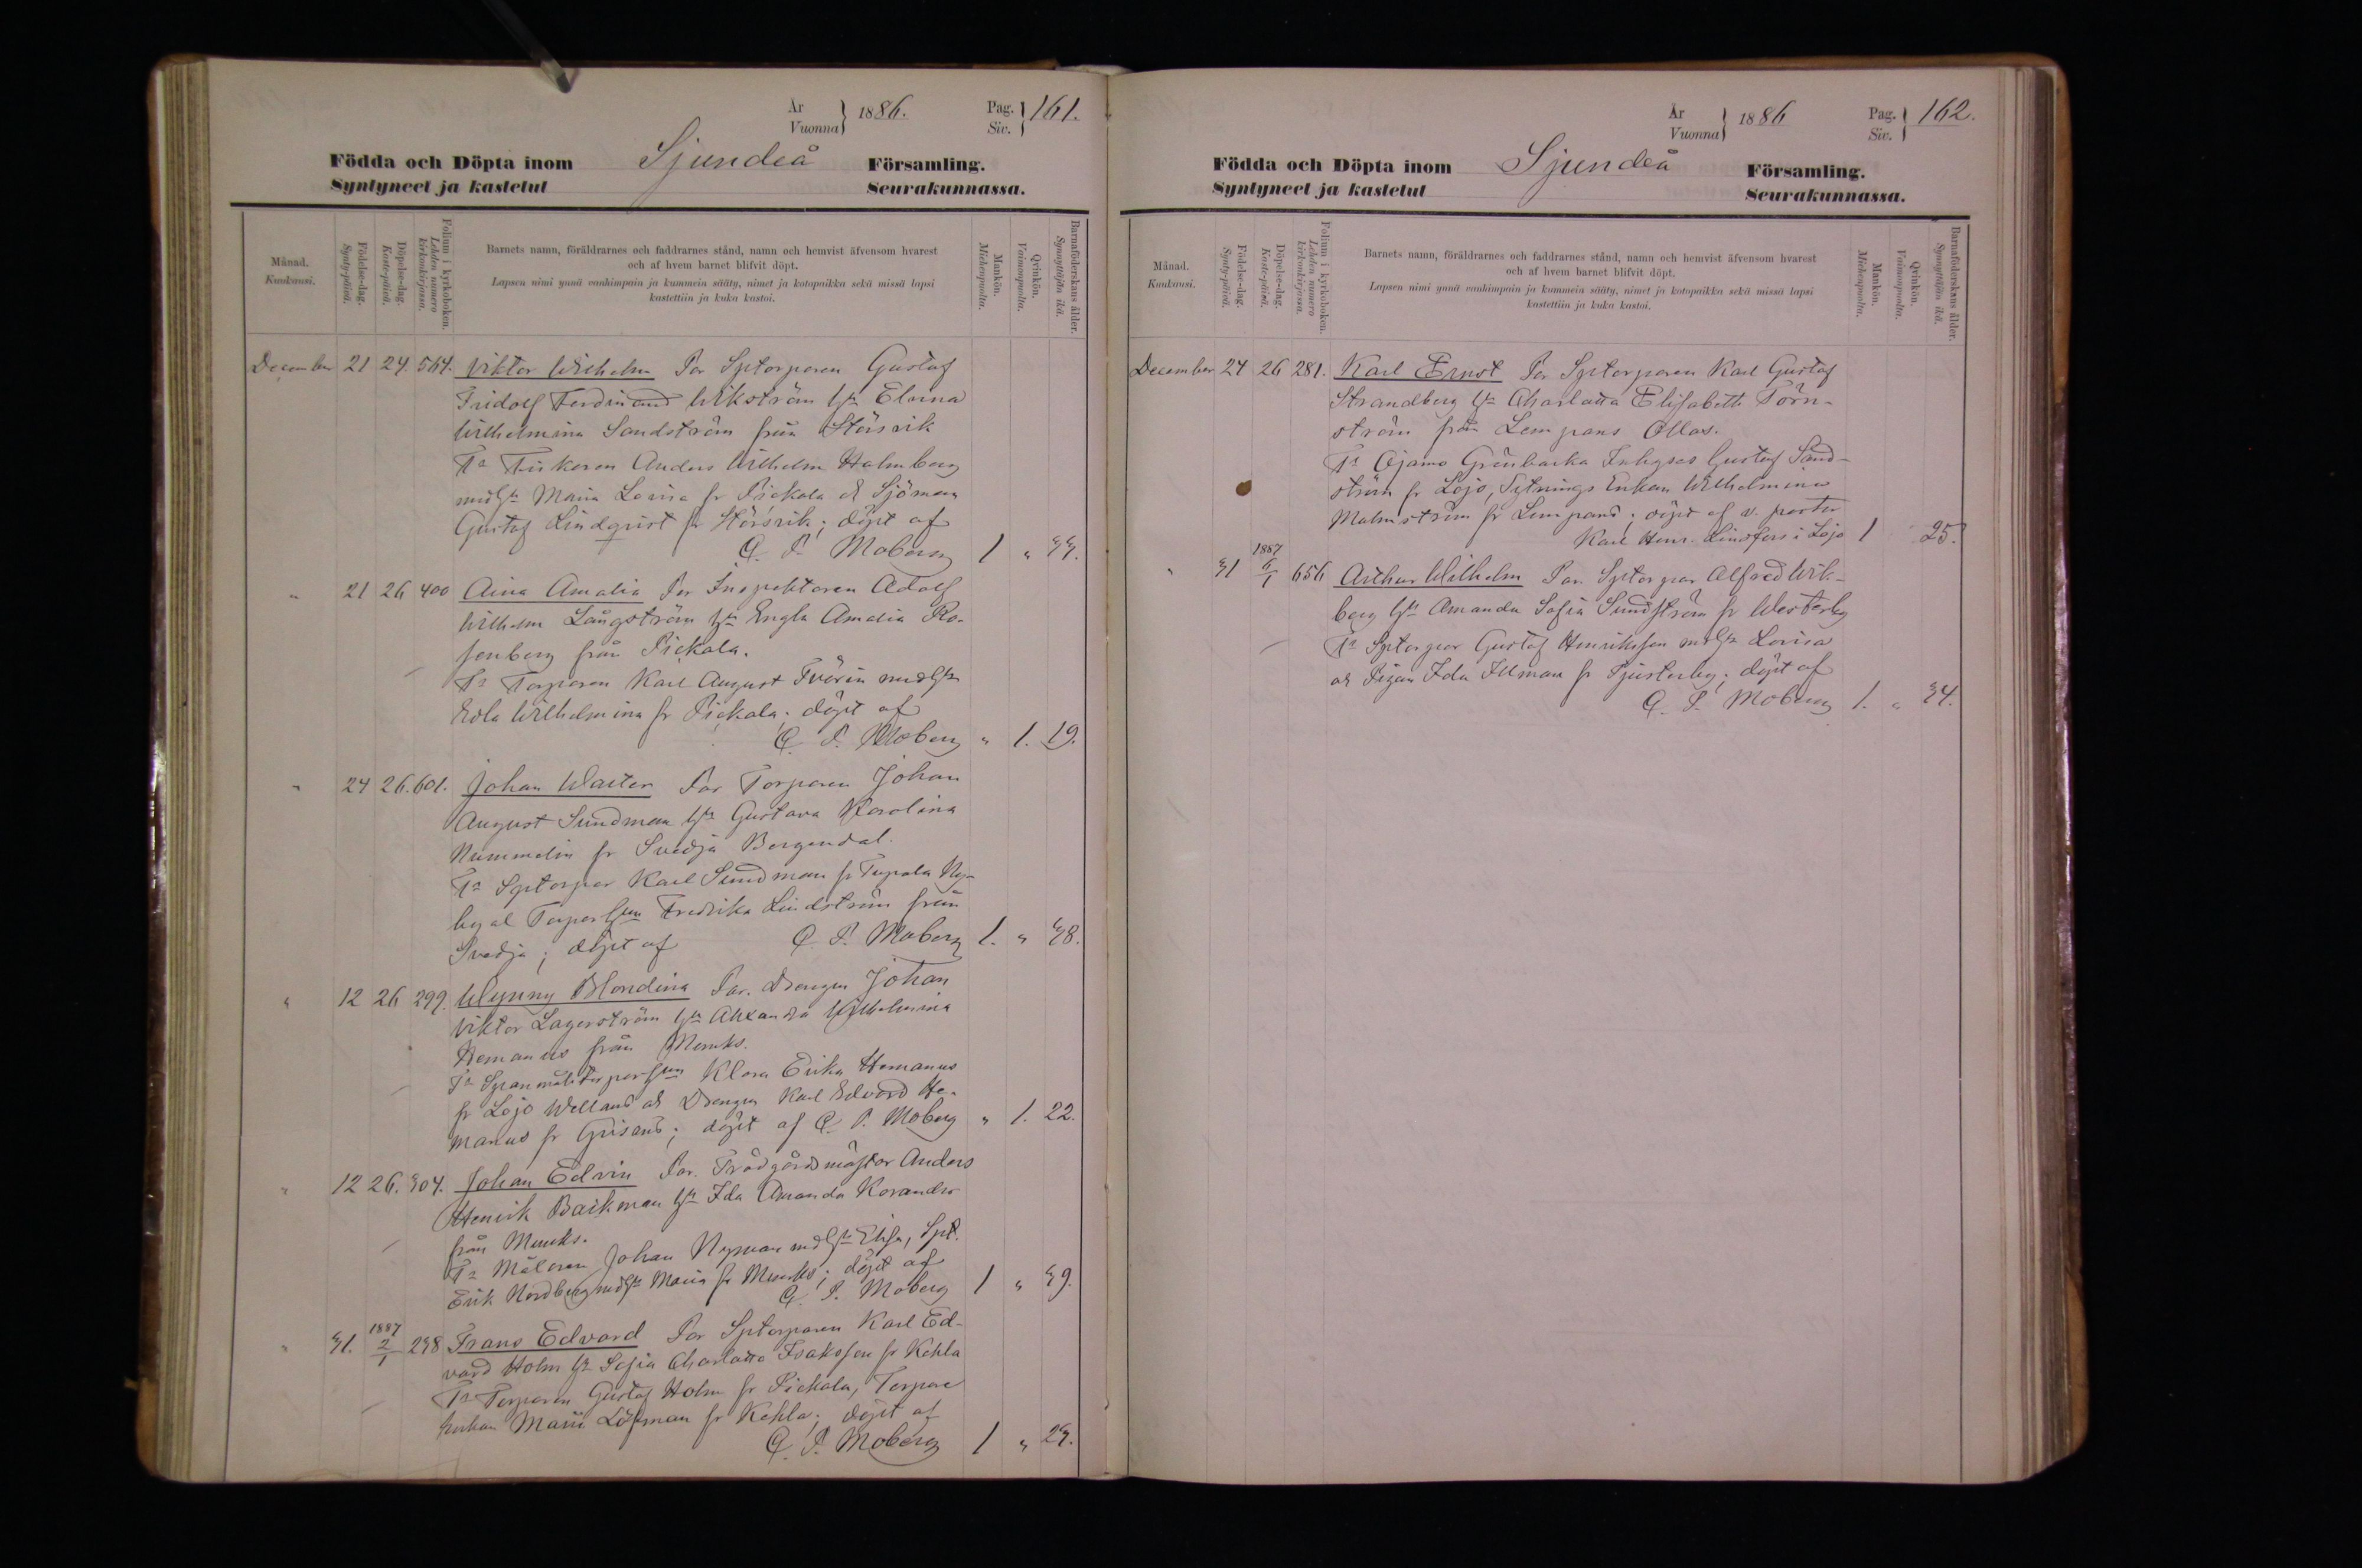 År
Vuonna } 1886. Pag.
Siv. } 161.
Födda och Döpta inom Sjundeå Församling.
Syntyneet ja kastetut Seurakunnassa.
Månad.
Kuukausi.
Födelse-dag.
Synty-päivä.
Döpelse-dag.
Kaste-päivä.
Folium i kyrkoboken.
Lehden numero kirkonkirjassa.
Barnets namn, föräldrarnes och faddrarnes stånd, namn och hemvist äfvensom hvarest
och af hvem barnet blifvit döpt.
Lapsen nimi ynnä vanhimpain ja kummein sääty, nimet ja kotopaikka sekä missä lapsi
kastettiin ja kuka kastoi.
Mankön.
Miehenpuolta.
Qvinkön.
Vaimonpuolta.
Barnaföderskans ålder.
Synnyttäjän ikä.
December 21 24. 564. Viktor Wilhelm Par Sptorparen Gustaf
Fridolf Ferdinand Wikström h:u Elvina
Wilhelmina Sandström från Störsvik
T:r Fiskaren Anders Wilhelm Holmberg
m d h:u Maria Lovisa fr Pickala & Sjöman
Gustaf Lindqvist fr Störsvik; döpt af
G. P. Moberg 1 " 33.
" 21 26 400 Aina Amalia Par Inspektoren Adolf
Wilhelm Långström h:u Engla Amalia Ro-
senberg från Pickala.
T:r Torparen Karl August Tvërin m d h:u
Eola Wilhelmina fr Pickala; döpt af
G. P. Moberg " 1. 19.
" 24 26. 601. Johan Walter Par Torparen Johan
August Sundman h:u Gustava Karolina
Nummelin fr Svedja Bergendal.
T:r Sptorpar Karl Sundman fr Tupala Ny-
by al Torparh:un Fredrika Lindström från
Svedja; döpt af G. P. Moberg 1. " 38.
" 12 26 299. Wynny Blondina Par. Drengen Johan
Viktor Lagerström h:u Alexandra Wilhelmina
Hemanus från Munks.
T:r h:un Klara Erika Hemanus
fr Lojo Wellans al Drengen Karl Edvard He-
manus fr Grisans; döpt af G. P. Moberg " 1. 22.
" 12 26. 304. Johan Edvin Par. Trädgårdsmästar Anders
Henrik Backman h:u Ida Amanda Korander
från Munks.
T:r Målaren Johan Nyman m d h:u Elisa, Spt.
Erik Nordberg m d h:u Maria fr Munks; döpt af
G. P. Moberg 1 " 39.
" 31. 1887 2/1 238 Frans Edvard Par Sptorparen Karl Ed-
vard Holm h:u Sofia Charlotta Isaksson fr Kehla
T:r Torparen Gustaf Holm fr Pickala, Torpare
Enkan Maria Löfman fr Kehla; döpt af
G. P. Moberg 1 " 23.
År
Vuonna } 1886 Pag.
Siv. } 162.
Födda och Döpta inom Sjundeå Församling.
Syntyneet ja kastetut Seurakunnassa.
Månad.
Kuukausi.
Födelse-dag.
Synty-päivä.
Döpelse-dag.
Kaste-päivä.
Folium i kyrkoboken.
Lehden numero kirkonkirjassa.
Barnets namn, föräldrarnes och faddrarnes stånd, namn och hemvist äfvensom hvarest
och af hvem barnet blifvit döpt.
Lapsen nimi ynnä vanhimpain ja kummein sääty, nimet ja kotopaikka sekä missä lapsi
kastettiin ja kuka kastoi.
Mankön.
Miehenpuolta.
Qvinkön.
Vaimonpuolta.
Barnaföderskans ålder.
Synnyttäjän ikä.
December 24 26 281. Karl Ernst Par Sptorparen Karl Gustaf
Strandberg h:u Charlotta Elisabeth Törn-
ström från Lempans Ollas.
T:r Ojamo Grönbacka Inhyses Gustaf Sand-
ström fr Lojo, Sytnings Enkan Wilhelmina
Malmström fr Lempans; döpt af v. pastor
Karl Henr. Lindfors i Lojo 1 25.
" 31 1887 6/1 656 Arthur Wilhelm Par. Sptorpar Alfred Wik-
berg h:u Amanda Sofia Sundström fr Westerby
T:r Sptorpar Gustaf Henriksson m d h:u Lovisa
al Pigan Ida Illman fr Pjusterby; döpt af
G. P. Moberg 1. " 34.